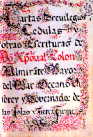 Cartas Previlegios
Cedulas y
otras Escrituras de
Xpoual Colon
Almirante Mayor
del Mar Oceano
Visorey y Governador
de las Islas y Tierra Firme